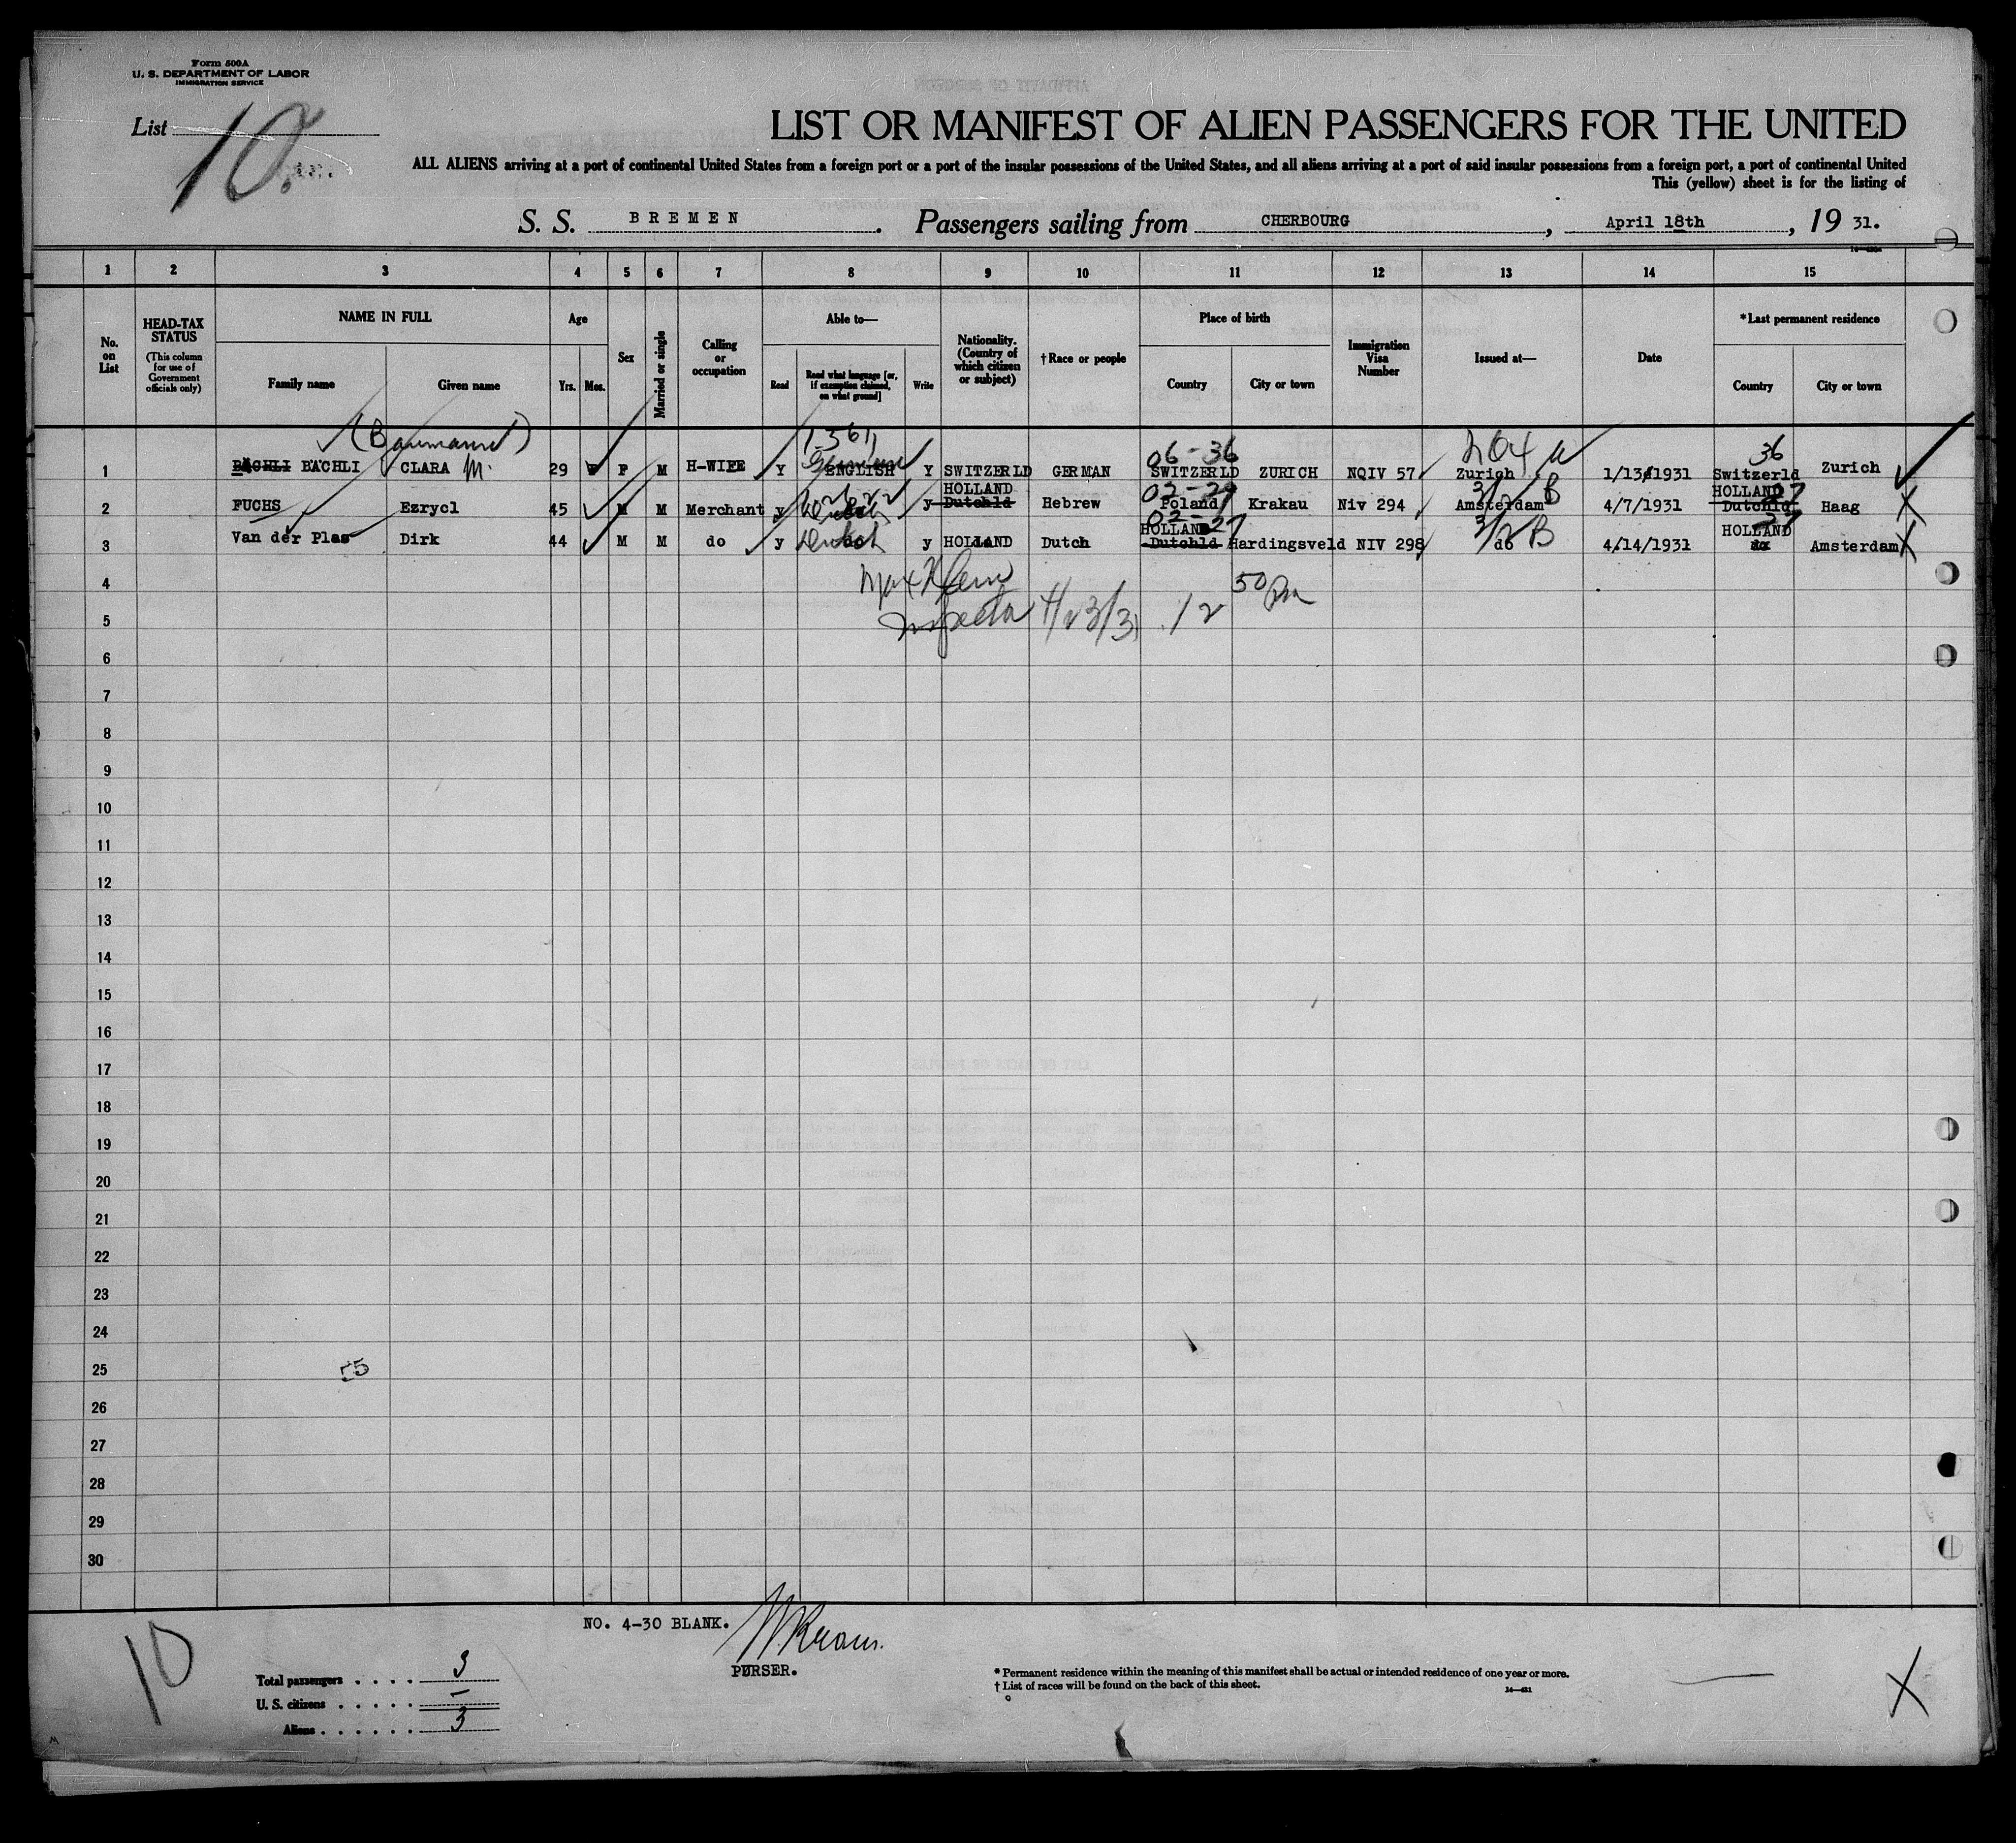 Form 500A
U. S. DEPARTMENT OF LABOR
IMMIGRATION SERVICE
List 10.
LIST OR MANIFEST OF ALIEN PASSENGERS FOR THE UNITED
ALL ALIENS arriving at a port of continental United States from a foreign port or a port of the insular possessions of the United States, and all aliens arriving at a port of said insular possessions from a foreign port, a port of continental United
This (yellow) sheet is for the listing of
S. S. BREMEN. Passengers sailing from CHERBOURG, April 18th, 19 31.
1 2 3 4 5 6 7 8 9 10 11 12 13 14 15
No. on List
HEAD-TAX STATUS
(This column for use of Government officials only)
NAME IN FULL
Family name
Given name
Age
Yrs.
Mos.
Sex
Married or single
Calling or occupation
Able to—
Read
Read what language [or, if exemption claimed, on what ground]
Write
Nationality. (Country of which citizen or subject)
†Race or people
Place of birth
Country
City or town
Immigration Visa Number
Issued at—
Date
*Last permanent residence
Country
City or town
(Baumann) 06-36 36
1 BÄCHLI BÄCHLI CLARA M. 29 F M H-WIFE Y ENGLISH German Y SWITZERLD GERMAN SWITZERLD ZURICH NQIV 57 Zurich 1/13/1931 Switzerld Zurich
HOLLAND 02-27 3/2 B HOLLAND 27
2 FUCHS Ezrycl 45 M M Merchant y Dutch y Dutchld Hebrew Poland Krakau Niv 294 Amsterdam 4/7/1931 Dutchld Haag X
02-27 HOLLAND 3/2 B HOLLAND 27
3 Van der Plas Dirk 44 M M do y Dutch y HOLLAND Dutch Dutchld Hardingsveld NIV 298 do 4/14/1931 do Amsterdam X
4 Max 50 Pm
5 Inspector 4/23/31 12
6
7
8
9
10
11
12
13
14
15
16
17
18
19
20
21
22
23
24
25 55
26
27
28
29
30
NO. 4-30 BLANK.
PURSER.
10
Total passengers . . . . 3
U. S. citizens . . . . . –
Aliens . . . . . . 3
* Permanent residence within the meaning of this manifest shall be actual or intended residence of one year or more.
† List of races will be found on the back of this sheet.
X